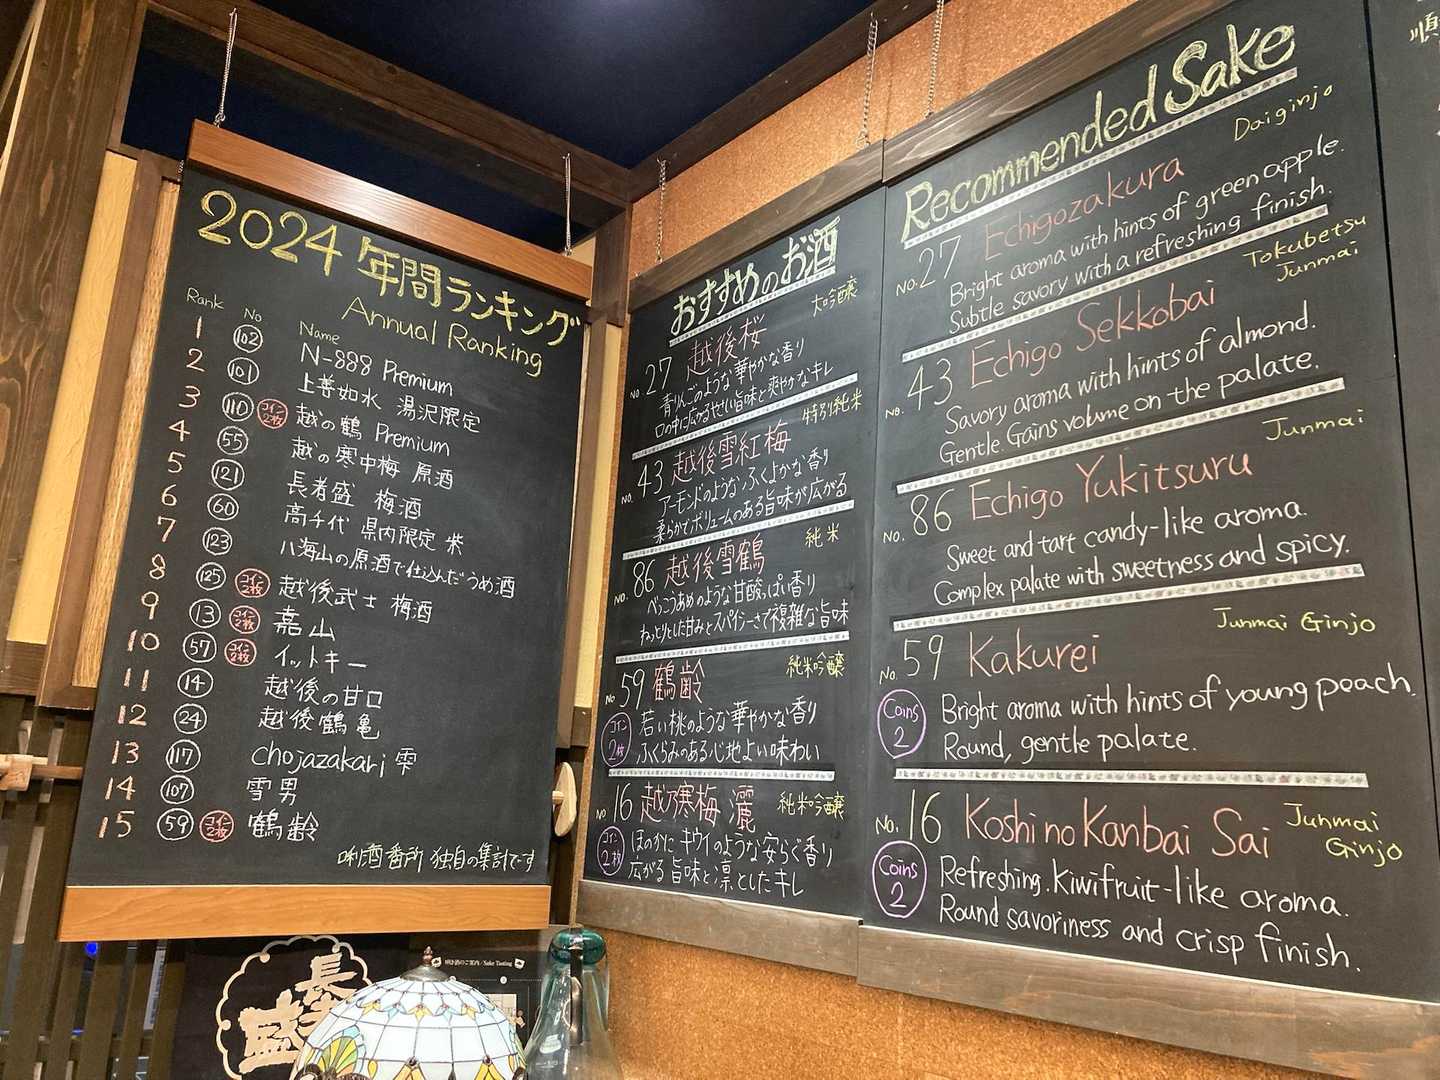 2024 年間ランキング
Annual Ranking
Rank No Name
1 102 N-888 Premium
2 101 上善如水 湯沢限定
3 110 コイン2枚 越の鶴 Premium
4 55 越の寒中梅 原酒
5 121 長者盛 梅酒
6 60 高千代 県内限定 紫
7 123 八海山の原酒で仕込んだうめ酒
8 125 コイン2枚 越後武士 梅酒
9 13 コイン2枚 嘉山
10 57 コイン2枚 イットキー
11 14 越後の甘口
12 24 越後鶴亀
13 117 chojazakari 雫
14 107 雪男
15 59 コイン2枚 鶴齢
唎酒番所 独自の集計です
おすすめのお酒
大吟醸
No.27 越後桜
青りんごのような華やかな香り
口の中に広がるやさしい旨味と爽やかなキレ
特別純米
No.43 越後雪紅梅
アーモンドのような、ふくよかな香り
柔らかでボリュームのある旨味が広がる
純米
No.86 越後雪鶴
べっこうあめのような甘酸っぱい香り
ねっとりとした甘みとスパイシーさで複雑な旨味
純米吟醸
No 59 鶴齢
コイン2枚
若い桃のような華やかな香り
ふくらみのある心地よい味わい
No 16 越乃寒梅 灑 純米吟醸
コイン2枚
ほのかに キウイのような安らぐ香り
広がる旨味と凛としたキレ
Recommended Sake
Daiginjo
No.27 Echigozakura
Bright aroma with hints of green apple.
Subtle savory with a refreshing finish.
Tokubetsu
Junmai
No. 43 Echigo Sekkobai
Savory aroma with hints of almond.
Gentle. Gains volume on the palate.
Junmai
No. 86 Echigo Yukitsuru
Sweet and tart candy-like aroma.
Complex palate with sweetness and spicy.
Junmai Ginjo
No. 59 Kakurei
Coins 2
Bright aroma with hints of young peach.
Round, gentle palate.
No. 16 Koshi no Kanbai Sai
Junmai
Ginjo
Coins 2
Refreshing. Kiwifruit-like aroma.
Round savoriness and crisp finish.
順
唎き酒のご案内/Sake Tasting
長者盛